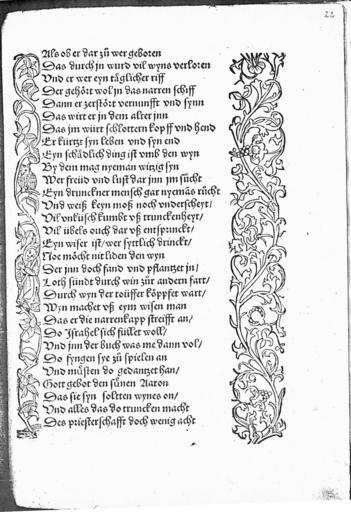 22
Als ob er dar zů wer geboren
Das durch jn wurd vil wyns verloren
Vnd er wer eyn täglicher riff
Der gehört wol jn das narren schiff
Dann er zerstört vernunfft vnd synn
Das wirt er jn dem alter jnn
Das jm würt schlottern kopff vnd hend
Er kürtzt syn leben vnd syn end
Eyn schädlich ding ist vmb den wyn
By dem mag nyeman witzig syn
Wer freüd vnd lust dar jnn jm sücht
Eyn drunckner mensch gar nyemäs rücht
Vnd weiß keyn moß noch vnderscheyt/
Vil vnküsch kumbt vß trunckenheyt/
Vil übels ouch dar vß entspringt/
Eyn wiser ist/wer syttlich drinckt/
Noe möcht nit liden den wyn
Der jnn doch fand vnd pflantzet jn/
Loth sündt durch win zůr andern fart/
Durch wyn der töüffer köppfet wart/
Wyn machet vß eym wisen man
Das er die narrenkapp streifft an/
Do Israhel sich füllet woll/
Vnd jnn der buch was me dann vol/
Do fyngen sye zů spielen an
Vnd müsten do gedantzet han/
Gott gebot den sünen Aaron
Das sie syn sollten wynes on/
Vnd alles das do truncken macht
Des priesterschafft doch wenig acht